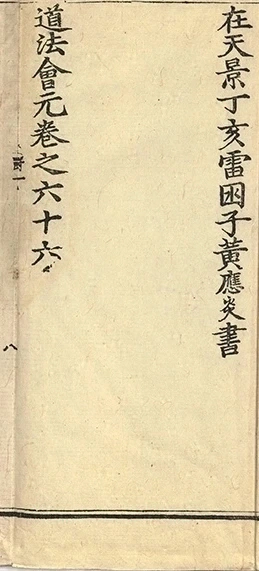 在天景丁亥雷囦子黃應炎書
道法會元卷之六十六
八